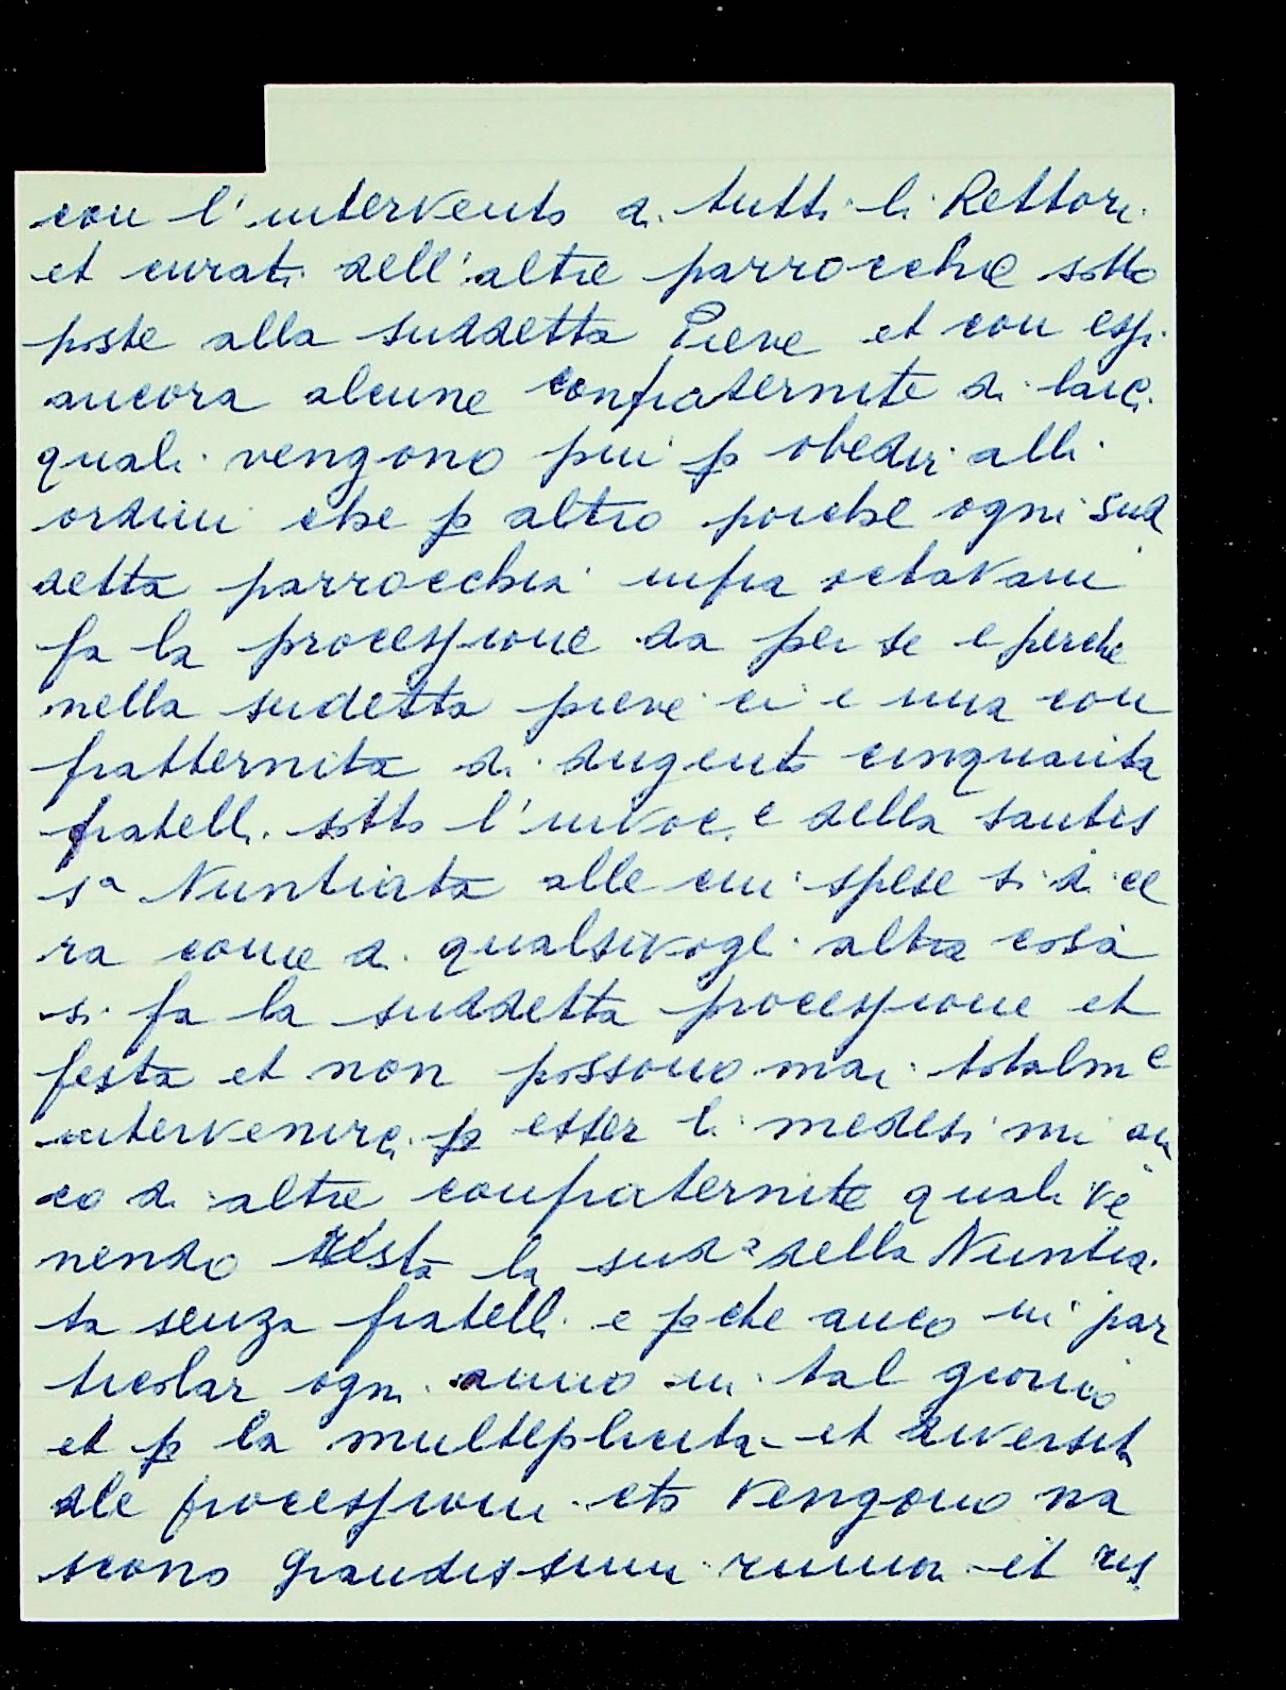 con l'intervento di tutti li Rettori
et curati dell'altre parrocchie sotto
poste alla suddetta Pieve et con essi
ancora alcune confraternite di laici
quali vengono piu p obedir alli
ordini che p altro poiche ogni sud
detta parrocchia infra octavam
fa la processione da per se e perche
nella sudetta pieve ci è una con
fratternita di dugento cinquanta
fratelli sotto l'invoc.e della santis
s.a Nuntiata alle cui spese si di ce
ra come di qualsivogli altra cosa
si fa la suddetta processione et
festa et non possono mai totalm.e
intervenire p esser li medesimi an
co di altre confraternite quali ve
nendo resta la sud.a della Nuntia
ta senza fratelli e pche anco in par
ticolar ogni anno in tal giorno
et p la multeplicita et diversita
dle processioni etc vengono na
scono grandissimi rumori et ris